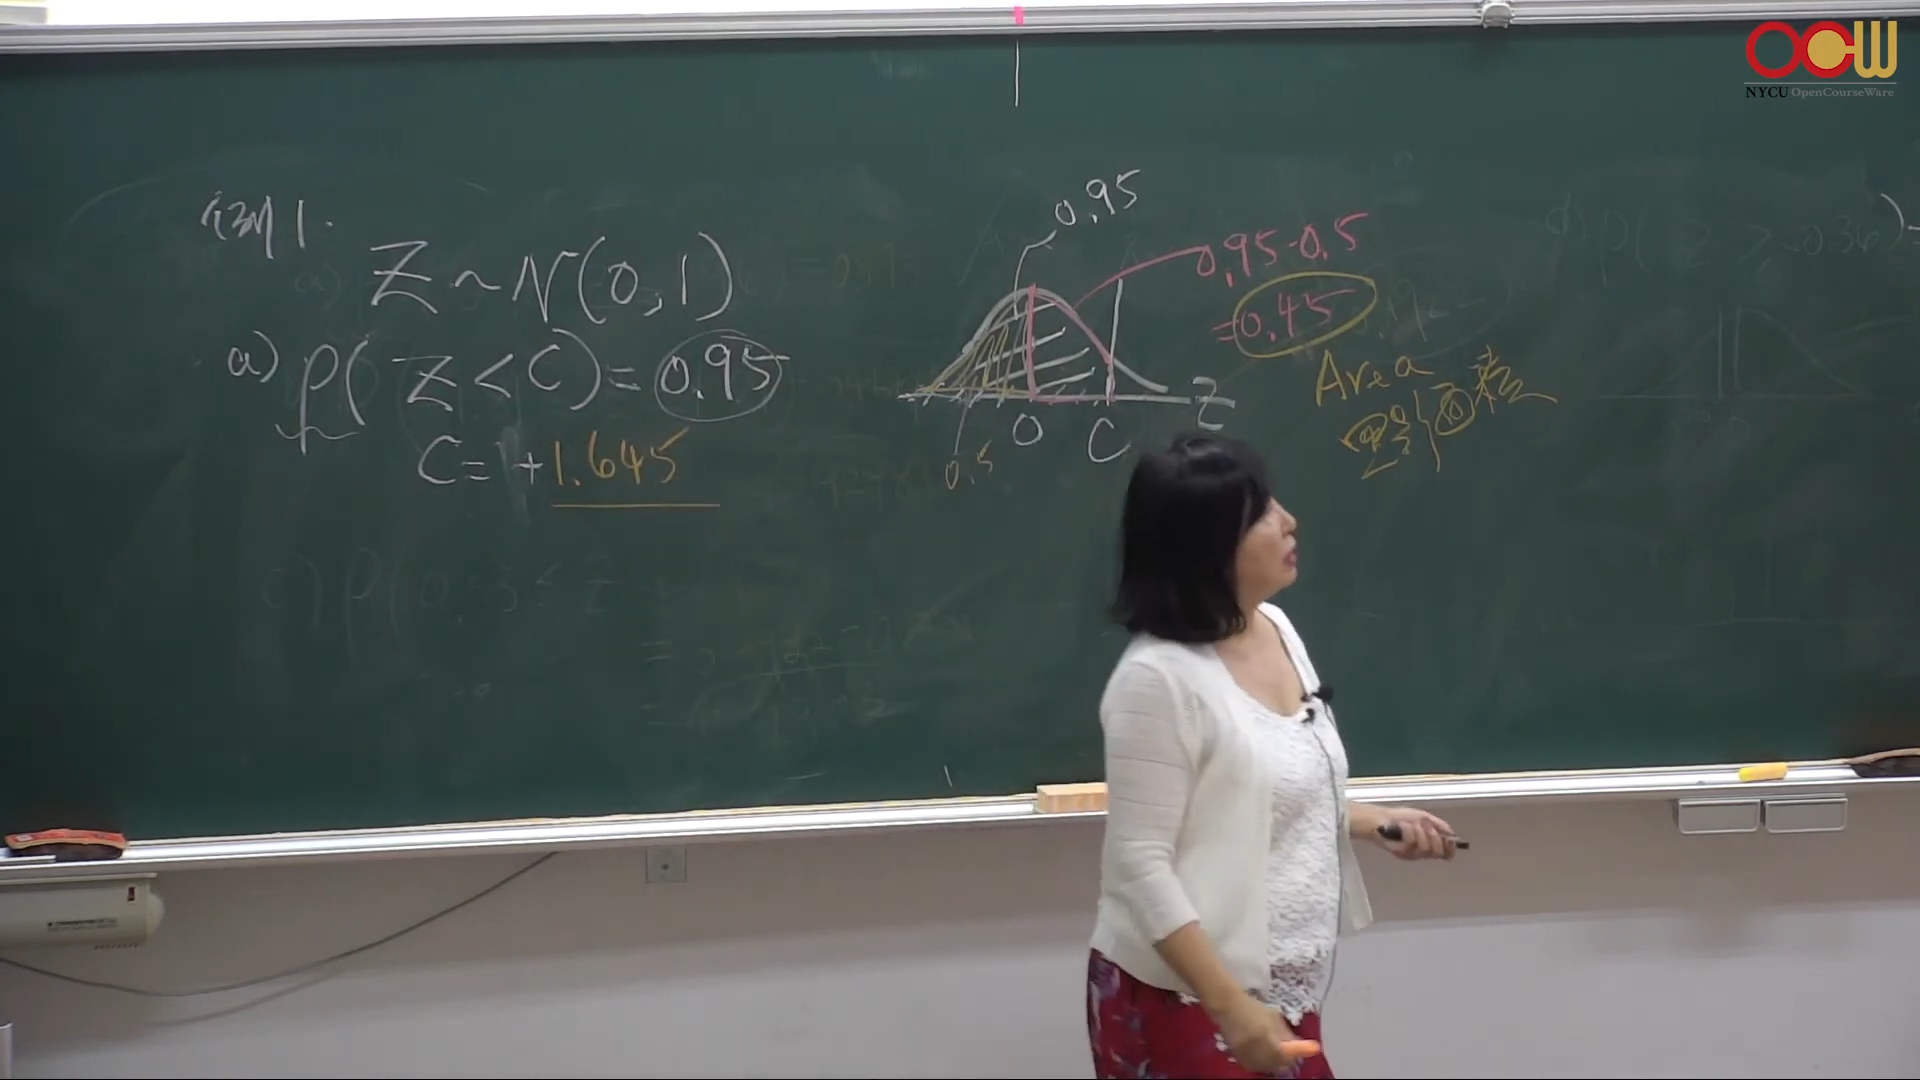 OCW
NYCU OpenCourseWare
例1.
Z ~ N(0,1)
a) P( Z < C) = 0.95
C = +1.645
0.95
0.95-0.5
=0.45
Area
面積
0 C Z
0.5